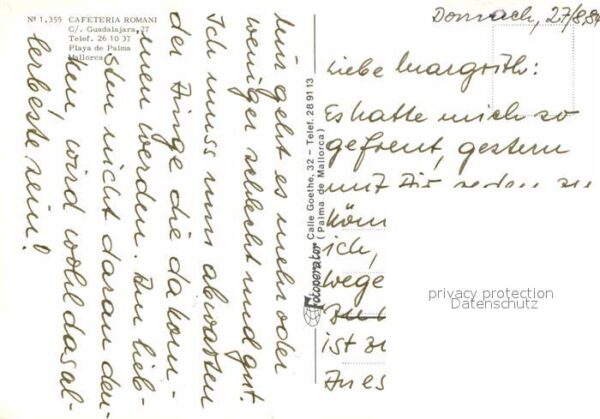 Nº 1.355 CAFETERIA ROMANI
C/. Guadalajara, 27
Telef. 26 10 37
Playa de Palma
Mallorca
Dornach, 27/8.84
Liebe Margrith:
Es hatte mich so
gefreut, gestern
mit Dir reden zu
könn
ich,
wege
ist zu
In es
Fotoperator Calle Goethe, 32 – Telef. 28 91 13
(Palma de Mallorca)
mir geht es mehr oder
weniger schlecht und gut.
Ich muss nun abwarten
der Dinge die da kom-
men werden. Am lieb-
sten nicht daran den-
ken, wird wohl das al-
lerbeste sein!
privacy protection
Datenschutz